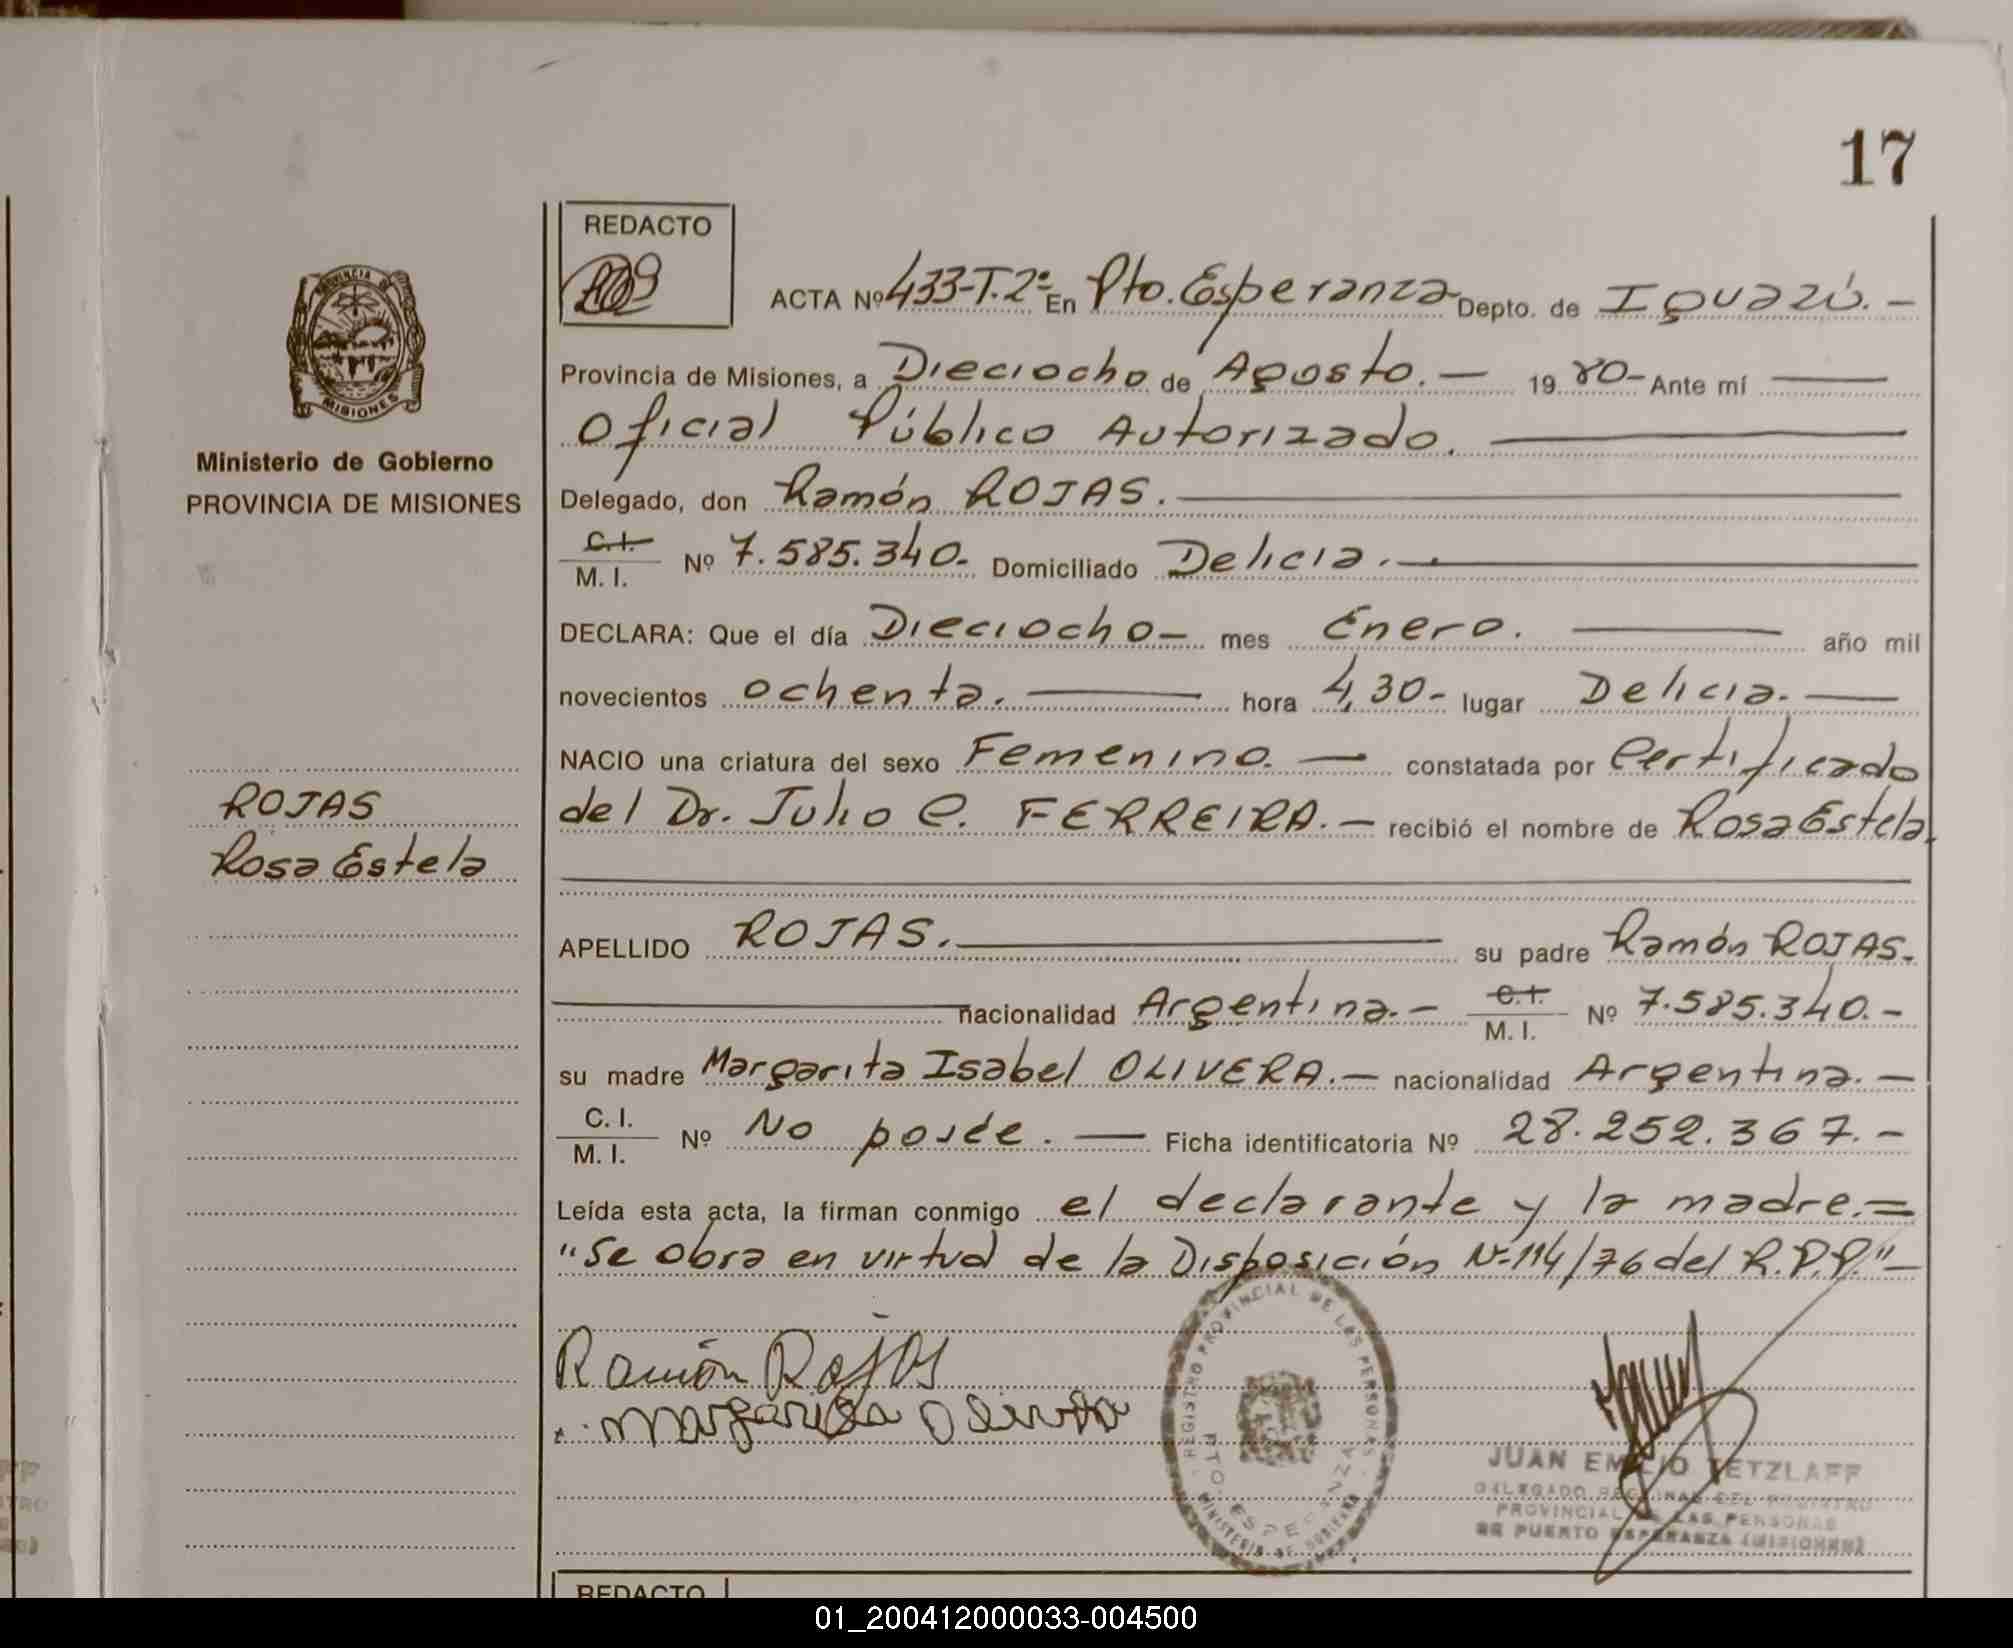 17
REDACTO
ACTA Nº 433-T.2º En Pto. Esperanza Depto. de Iguazú.-
Provincia de Misiones, a Dieciocho de Agosto.- 19 80- Ante mí
Oficial Público Autorizado.
Delegado, don Ramón ROJAS.
C.I. M. I. Nº 7.585.340.- Domiciliado Delicia.-
DECLARA: Que el día Dieciocho- mes Enero. año mil
novecientos ochenta. hora 4,30- lugar Delicia.-
NACIO una criatura del sexo Femenino.- constatada por Certificado
del Dr. Julio C. FERREIRA.- recibió el nombre de Rosa Estela.
APELLIDO ROJAS. su padre Ramón ROJAS.-
nacionalidad Argentina.- C.I. M. I. Nº 7.585.340.-
su madre Margarita Isabel OLIVERA.- nacionalidad Argentina.-
C. I. M. I. Nº No posée.- Ficha identificatoria Nº 28.252.367.-
Leída esta acta, la firman conmigo el declarante y la madre.=
"Se obra en virtud de la Disposición Nº 114/76 del R.P.P."-
Ramón Rojas
Margarita Olivera
PROVINCIA DE
MISIONES
Ministerio de Gobierno
PROVINCIA DE MISIONES
ROJAS
Rosa Estela
REGISTRO PROVINCIAL DE LAS PERSONAS
PTO. ESPERANZA
MINISTERIO DE GOBIERNO
JUAN EMILIO TETZLAFF
DELEGADO REGIONAL DEL REGISTRO
PROVINCIAL DE LAS PERSONAS
DE PUERTO ESPERANZA (MISIONES)
REDACTO
01_200412000033-004500